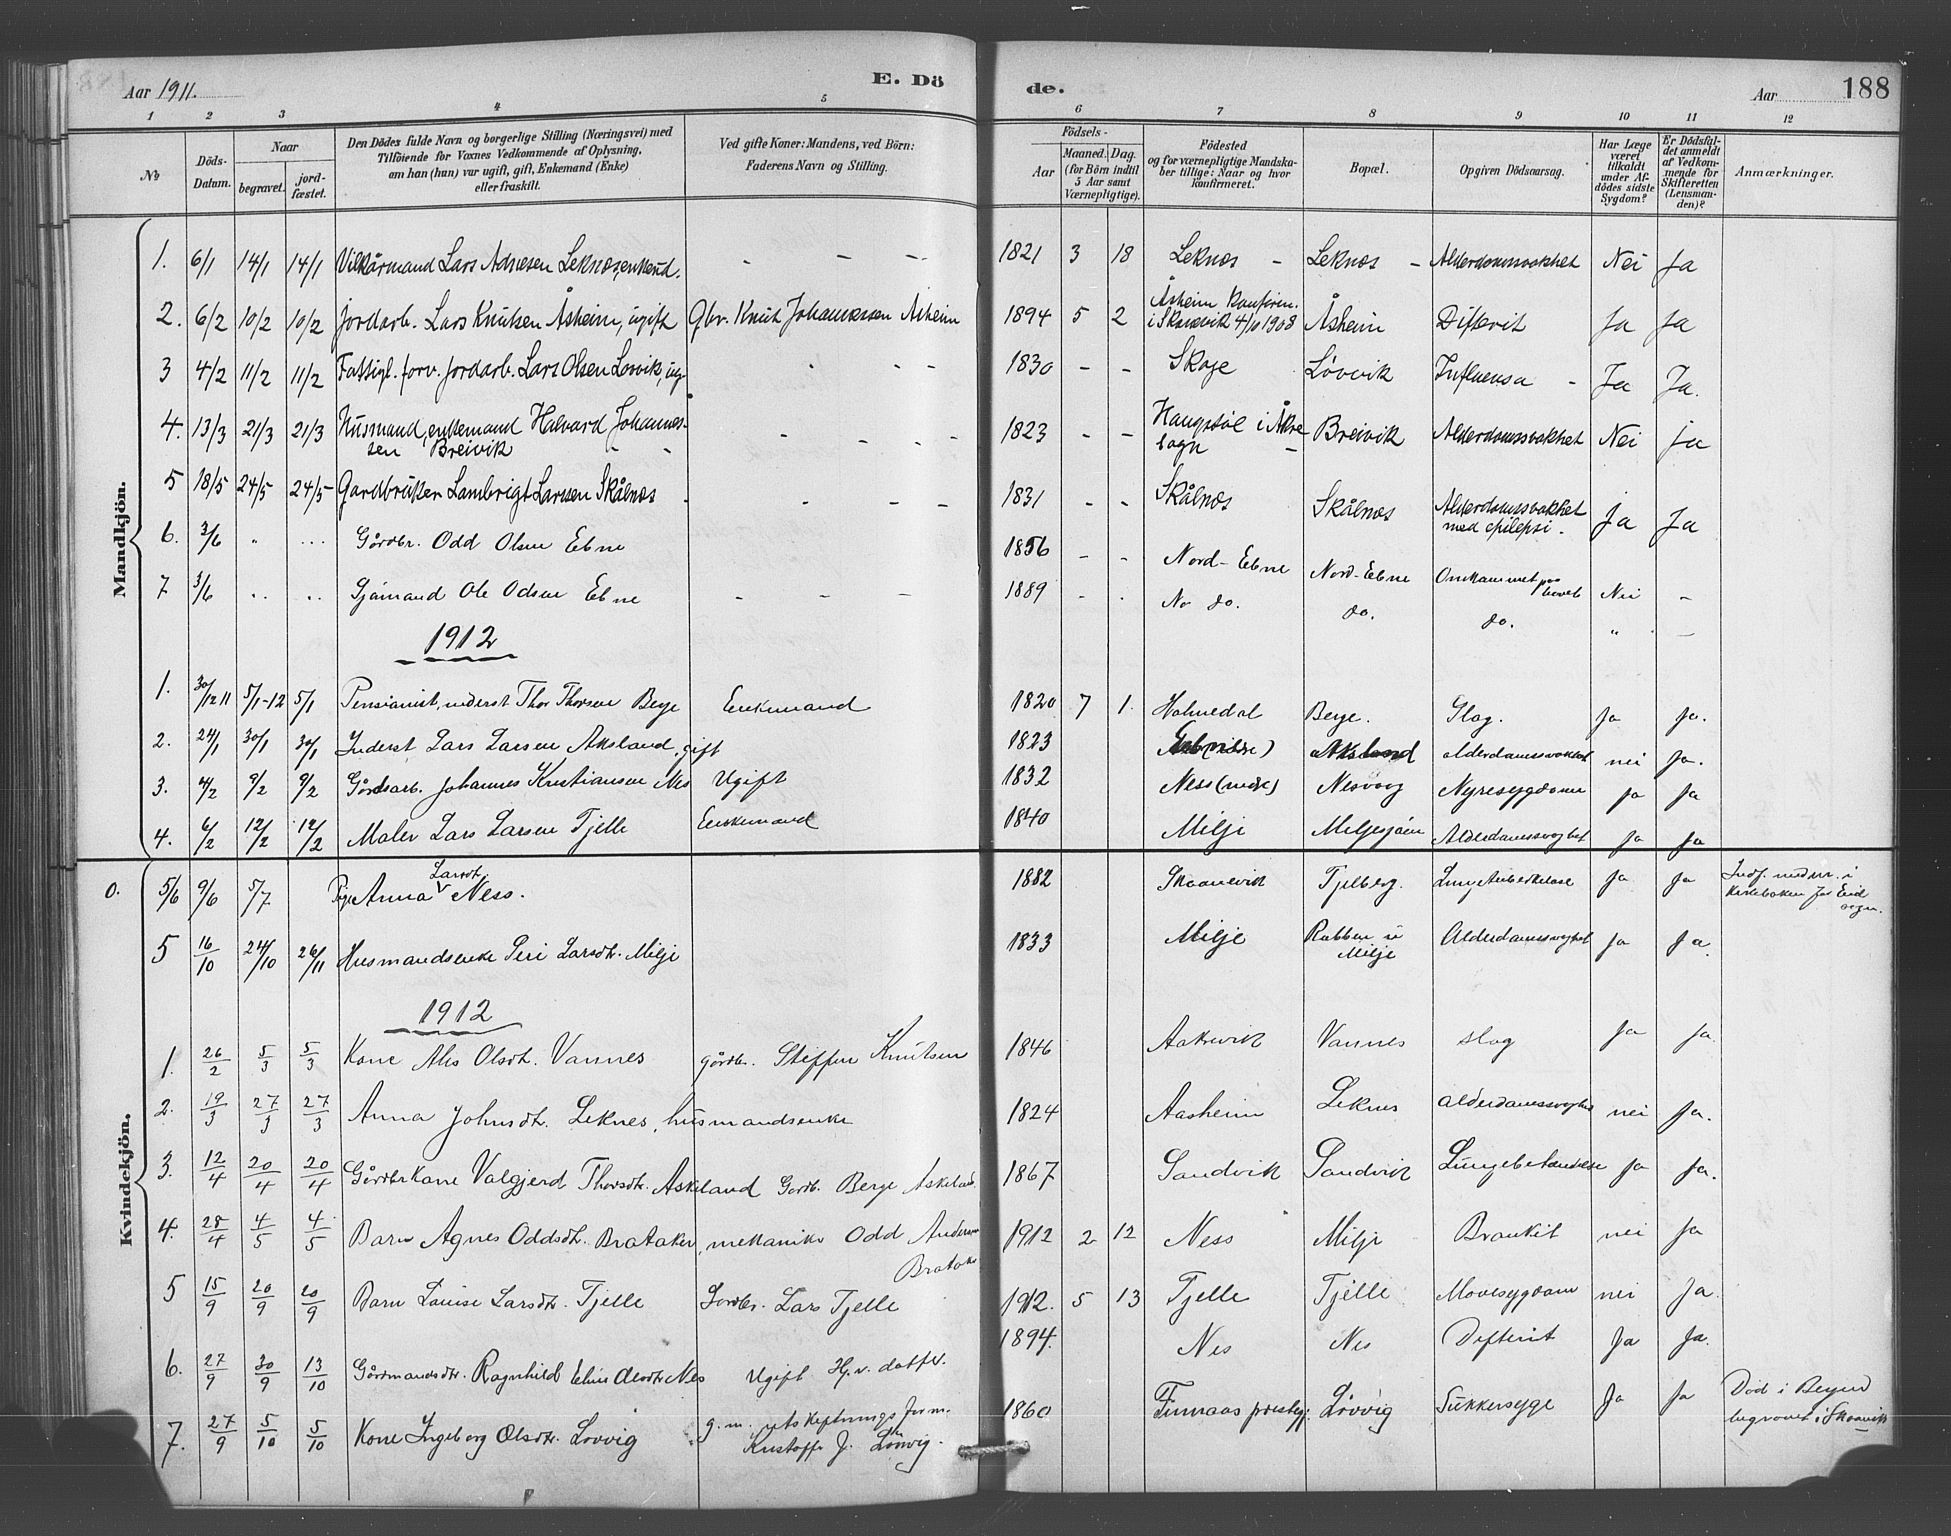 Aar 1911. E. Dö de. Aar 188
1 2 3 4 5 6 7 8 9 10 11 12
No Döds-Datum. Naar begravet. jord-fæstet. Den Dödes fulde Navn og borgerlige Stilling (Næringsvei) med Tilföiende for Voxnes Vedkommende af Oplysning, om han (hun) var ugift, gift, Enkemand (Enke) eller fraskilt. Ved gifte Koner: Mandens, ved Börn: Faderens Navn og Stilling. Födsels- Aar Maaned. Dag. (for Börn indtil 5 Aar samt Værnepligtige). Födested og for værnepligtige Mandskaber tillige: Naar og hvor konfirmeret. Bopæl. Opgiven Dödsaarsag. Har Læge været tilkaldt under Afdödes sidste Sygdom? Er Dödsfaldet anmeldt af Vedkommende for Skifteretten (Lensmanden)? Anmærkninger.
Mandkjön.
1. 6/1 14/1 14/1 Vilkårmand Lars Leknes, enkemd. - - - 1821 3 18 Leknæs - Leknæs - Alderdomssvakhet Nei Ja
2. 6/2 10/2 10/2 Jordarb. Lars Knutsen Åsheim, ugift Gbr. Knut Johannessen Åsheim 1894 5 2 Åsheim Konfirm. i Skånevik 4/10 1908 Åsheim Difterit Ja Ja
3 4/2 11/2 11/2 Fattigl. forv. Jordarb. Lars Olsen Løvvik, ug. - - 1830 - - Skoge Løvvik Influensa - Ja Ja.
4. 13/3 21/3 21/3 Husmand, enkemand Halvard Johannes-sen Breivik - - - 1823 - - Haugstøl i Åkre sogn - Breivik Alderdomssvakhet Nei Ja
5 18/5 24/5 24/5 - Gardbruker Lambrigt Larsen Skålnæs - - - 1831 - - Skålnæs Skålnæs Alderdomssvakhet med epilepsi. Ja Ja
6. 3/6 " ... Gårdbr. Odd Olsen Ebne 1856 - - Nord-Ebne Nord-Ebne Omkommet paa havet Nei -
7 3/6 .. .. Sjømand Ole Odsen Ebne - - - 1889 - . No do. do. do. " -
1912
1. 30/12 11 5/1-12 5/1 Pensionist, inderst Thor Thorsen Berge Enkemand 1820 7 1. Holmedal Berge. Slag. Ja Ja.
2. 24/1 30/1 30/1 Inderst Lars Larsen Aksland, gift 1823 Aksland alderdomssvakhet nei Ja.
3. 4/2 9/2 9/2 Gårdsarb. Johannes Kristiansen Nes Ugift 1832 Ness (nedre) Nesvaag Nyresygdom Ja Ja
4. 6/2 12/2 12/2 Maler Lars Larsen Tjelle Enkemand 1840 Milje Miljesjøen Alderdomssvaghet Ja Ja
Kvindekjön.
0. 5/6 9/6 5/7 Pige Anna Larsdt. Ness. 1882 Skaanevik Tjelberg. Lungetuberkulose Ja Ja Indf. nedenu. i kirkeboken for Eid sogn.
5 16/10 24/10 26/11 Husmandsenke Siri Larsdt. Milje 1833 Milje Rabben u Milje Alderdomssvaghet Ja Ja.
1912
1. 26/2 5/3 5/3 Kone Alis Olsdt. Vannes gårdbr. Steffen Knutsen 1846 Aakrevik Vannes slag Ja Ja.
2. 19/3 27/3 27/3 Anna Johnsdt. Leknes, husmandsenke 1824 Aasheim Leknes alderdomssvaghet nei Ja.
3. 12/4 20/4 20/4 Gårdbrkone Valgjerd Thorsdt. Askeland Gardb. Berge Askeland 1867 Sandvik Sandvik Lungebetændelse Ja Ja.
4. 28/4 4/5 4/5 Barn Agnes Oddsdt. Brataker, mekaniker Odd Andersen Brataker 1912 2 12 Ness Milje Bronkit nei Ja
5 15/9 20/9 20/9 Barn Louise Larsdt. Tjelle Gardbr. Lars Tjelle 1912. 5 13 Tjelle Tjelle Mavesygdom nei Ja
6. 27/9 30/9 13/10 Gårdmandsdtr. Ragnhild Eline Olsdtr Nes Ugift Hj.v. datter. 1894. Nes Nes Defterit Ja Ja.
7. 27/9 5/10 5/10 Kone Ingeborg Olsdtr. Lovvig g. m. utskiftnings form. Kristoffer J. Løvvig. 1860 Finnaas prestegj. Løvvig Sukkersyge Ja Ja Død i Bergen begravet i Skaanvik